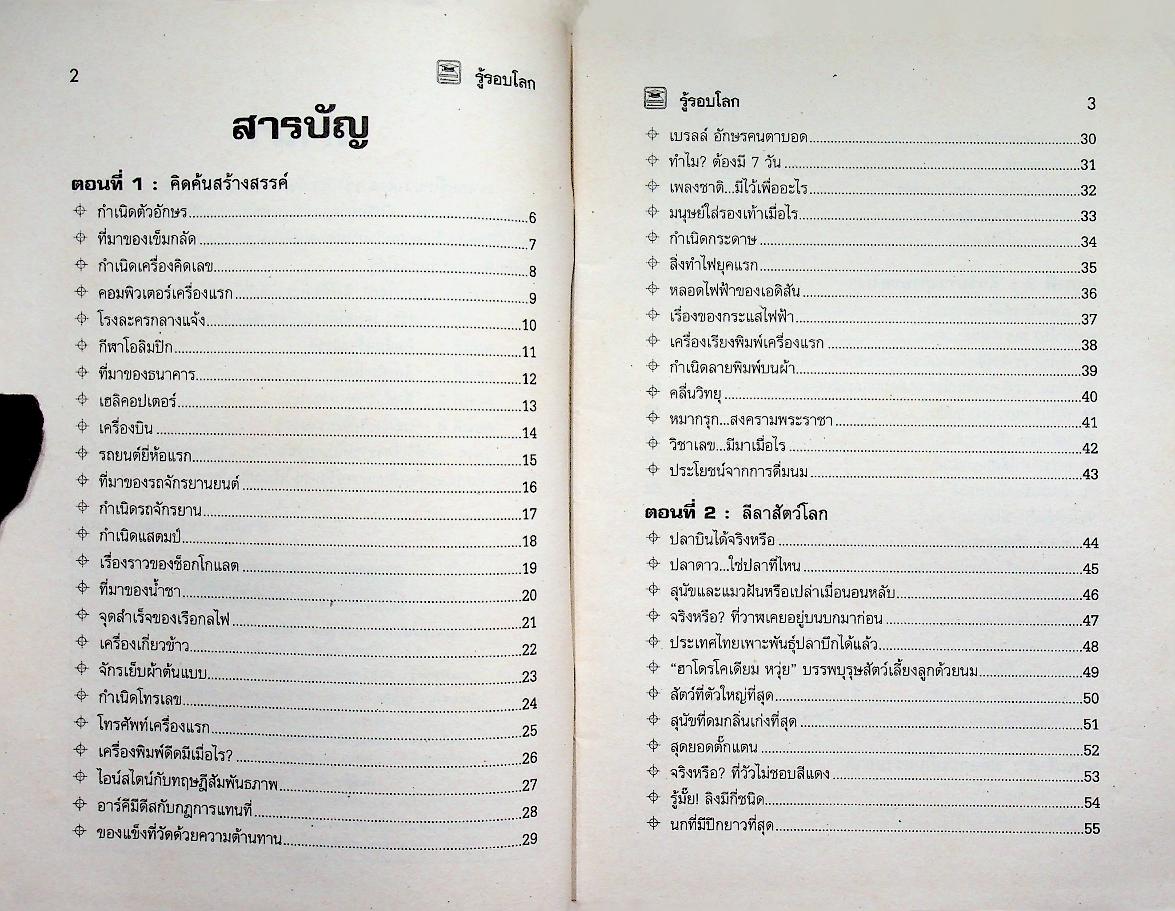 2
รู้รอบโลก
สารบัญ
ตอนที่ 1 : คิดค้นสร้างสรรค์
กำเนิดตัวอักษร....................6
ที่มาของเข็มกลัด....................7
กำเนิดเครื่องคิดเลข....................8
คอมพิวเตอร์เครื่องแรก....................9
โรงละครกลางแจ้ง....................10
กีฬาโอลิมปิก....................11
ที่มาของธนาคาร....................12
เฮลิคอปเตอร์....................13
เครื่องบิน....................14
รถยนต์ยี่ห้อแรก....................15
ที่มาของรถจักรยานยนต์....................16
กำเนิดรถจักรยาน....................17
กำเนิดแสตมป์....................18
เรื่องราวของช็อกโกแลต....................19
ที่มาของน้ำชา....................20
จุดสำเร็จของเรือกลไฟ....................21
เครื่องเกี่ยวข้าว....................22
จักรเย็บผ้าต้นแบบ....................23
กำเนิดโทรเลข....................24
โทรศัพท์เครื่องแรก....................25
เครื่องพิมพ์ดีดมีเมื่อไร?....................26
ไอน์สไตน์กับทฤษฎีสัมพันธภาพ....................27
อาร์คีมีดีสกับกฎการแทนที่....................28
ของแข็งที่วัดด้วยความต้านทาน....................29
รู้รอบโลก
3
เบรลล์ อักษรคนตาบอด....................30
ทำไม? ต้องมี 7 วัน....................31
เพลงชาติ...มีไว้เพื่ออะไร....................32
มนุษย์ใส่รองเท้าเมื่อไร....................33
กำเนิดกระดาษ....................34
สิ่งทำไฟยุคแรก....................35
หลอดไฟฟ้าของเอดิสัน....................36
เรื่องของกระแสไฟฟ้า....................37
เครื่องเรียงพิมพ์เครื่องแรก....................38
กำเนิดลายพิมพ์บนผ้า....................39
คลื่นวิทยุ....................40
หมากรุก...สงครามพระราชา....................41
วิชาเลข...มีมาเมื่อไร....................42
ประโยชน์จากการดื่มนม....................43
ตอนที่ 2 : ลีลาสัตว์โลก
ปลาบินได้จริงหรือ....................44
ปลาดาว...ใช่ปลาที่ไหน....................45
สุนัขและแมวฝันหรือเปล่าเมื่อนอนหลับ....................46
จริงหรือ? ที่วาฬเคยอยู่บนบกมาก่อน....................47
ประเทศไทยเพาะพันธุ์ปลาบึกได้แล้ว....................48
“ฮาโดรโคเดียม หวุ่ย” บรรพบุรุษสัตว์เลี้ยงลูกด้วยนม....................49
สัตว์ที่ตัวใหญ่ที่สุด....................50
สุนัขที่ดมกลิ่นเก่งที่สุด....................51
สุดยอดตั๊กแตน....................52
จริงหรือ? ที่วัวไม่ชอบสีแดง....................53
รู้มั๊ย! ลิงมีกี่ชนิด....................54
นกที่มีปีกยาวที่สุด....................55